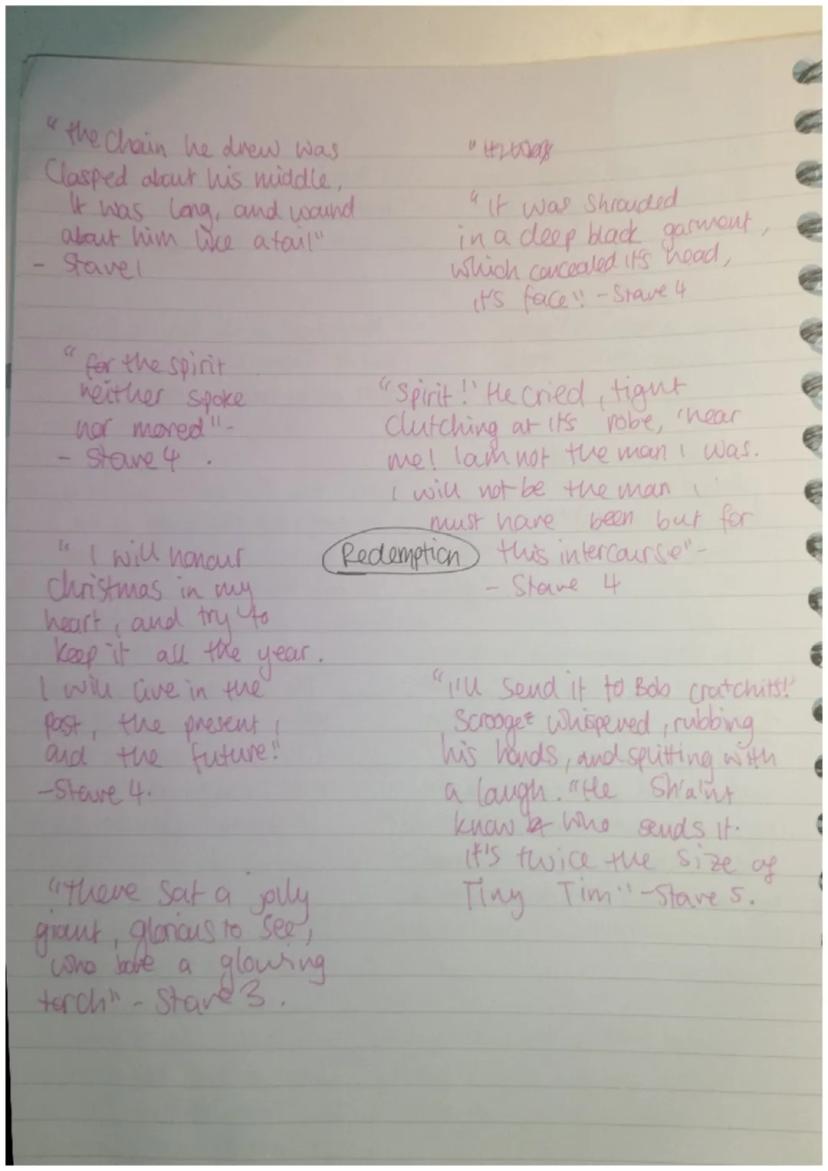 "the Chain he drew was
Clasped about his middle,
It was long, and wound
about him like a tail"
- Stave 1
"It was shrouded
in a deep black garment,
which concealed it's head,
it's face" - Stave 4
"for the spirit
neither spoke
nor moved" -
- Stave 4.
"Spirit!' He cried, tight
Clutching at it's robe, 'hear
me! I am not the man I was.
I will not be the man I
must have been but for
this intercourse" -
- Stave 4
Redemption
"I will honour
christmas in my
heart, and try to
keep it all the year.
I will live in the
past, the present,
and the future."
- Stave 4.
"I'll send it to Bob cratchits!'
Scrooge whispered, rubbing
his hands, and splitting with
a laugh. "He Sha'nt
know who sends it.
It's twice the size of
Tiny Tim" - Stave 5.
"there sat a jolly
giant, glorious to see,
who bore a glowing
torch" - Stave 3.